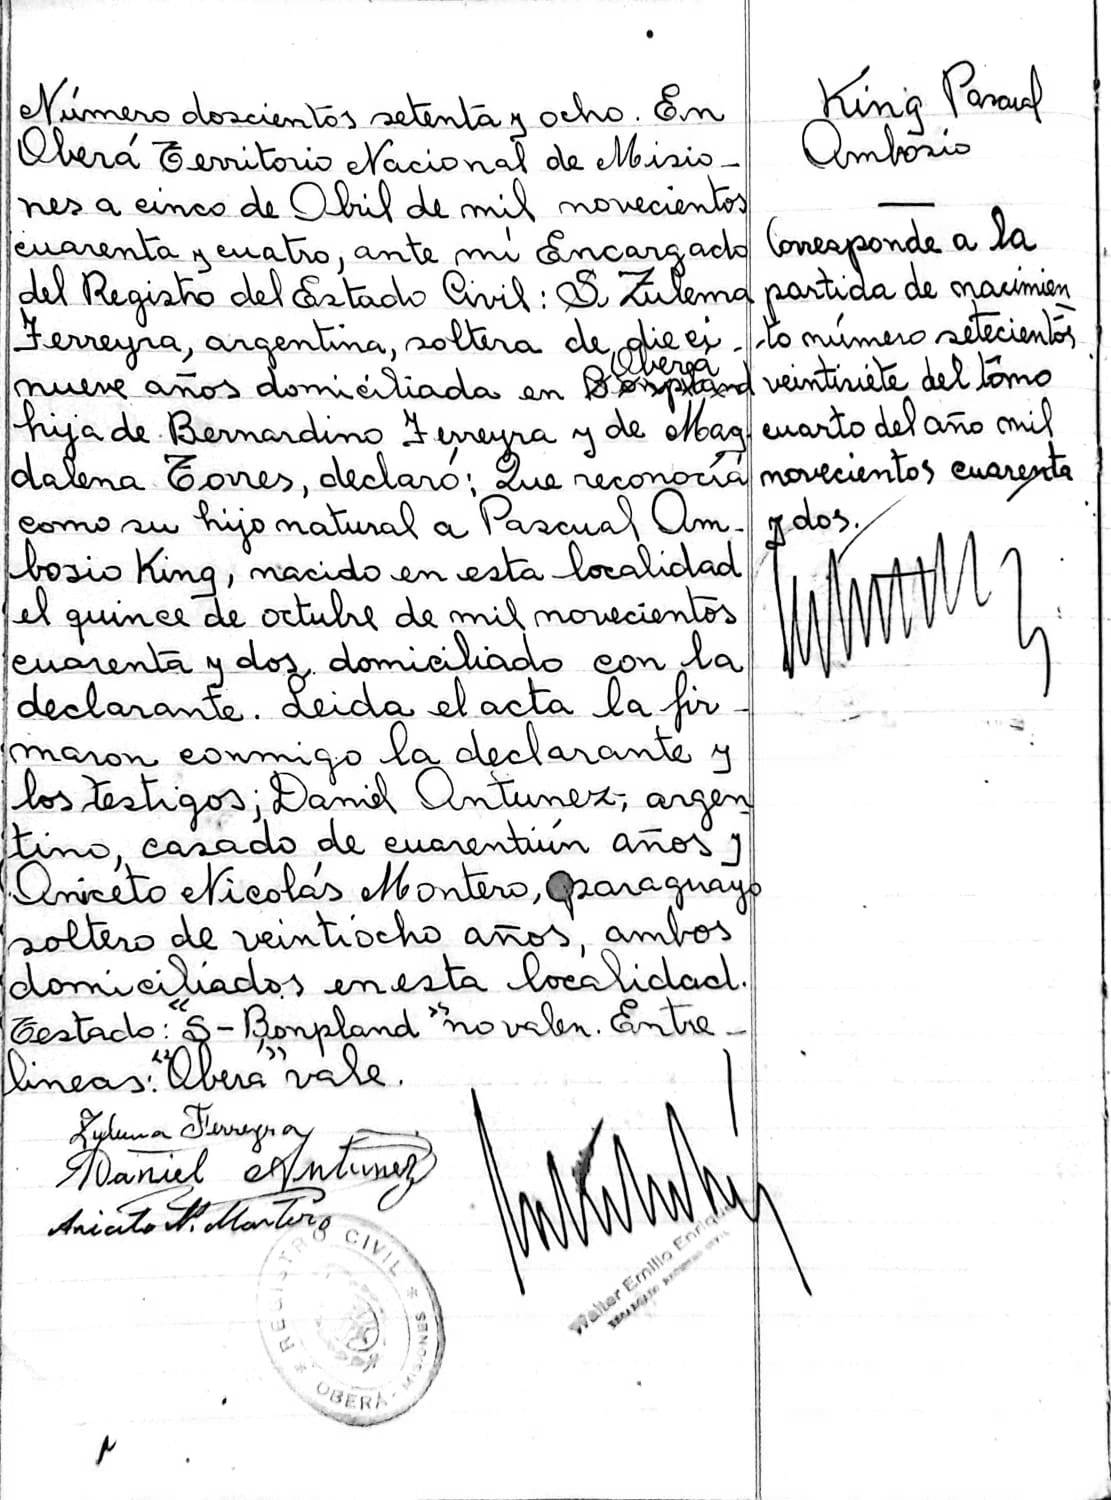 Número doscientos setenta y ocho. En
Oberá Territorio Nacional de Misio-
nes a cinco de Abril de mil novecientos
cuarenta y cuatro, ante mi Encargado
del Registro del Estado Civil: S. Zulema
Ferreyra, argentina, soltera de dieci-
Oberá
nueve años domiciliada en Bonpland
hija de Bernardino Ferreyra y de Mag
dalena Torres, declaró; Que reconocía
como su hijo natural a Pascual Am-
bosio King, nacido en esta localidad
el quince de octubre de mil novecientos
cuarenta y dos, domiciliado con la
declarante. Leida el acta la fir-
maron conmigo la declarante y
los testigos; Daniel Antunez, argen
tino, casado de cuarentiún años y
Aniceto Nicolás Montero, paraguayo
soltero de veintiocho años, ambos
domiciliados en esta localidad.
Testado: "S - Bonpland" no valen. Entre-
lineas: "Oberá" vale.
Zulema Ferreyra
Daniel Antunez
Aniceto N. Montero
REGISTRO CIVIL * MISIONES - OBERÁ *
Walter Emilio Enriqu
King Pascual
Ambosio
Corresponde a la
partida de nacimien
to número setecientos
veintisiete del tomo
cuarto del año mil
novecientos cuarenta
y dos.